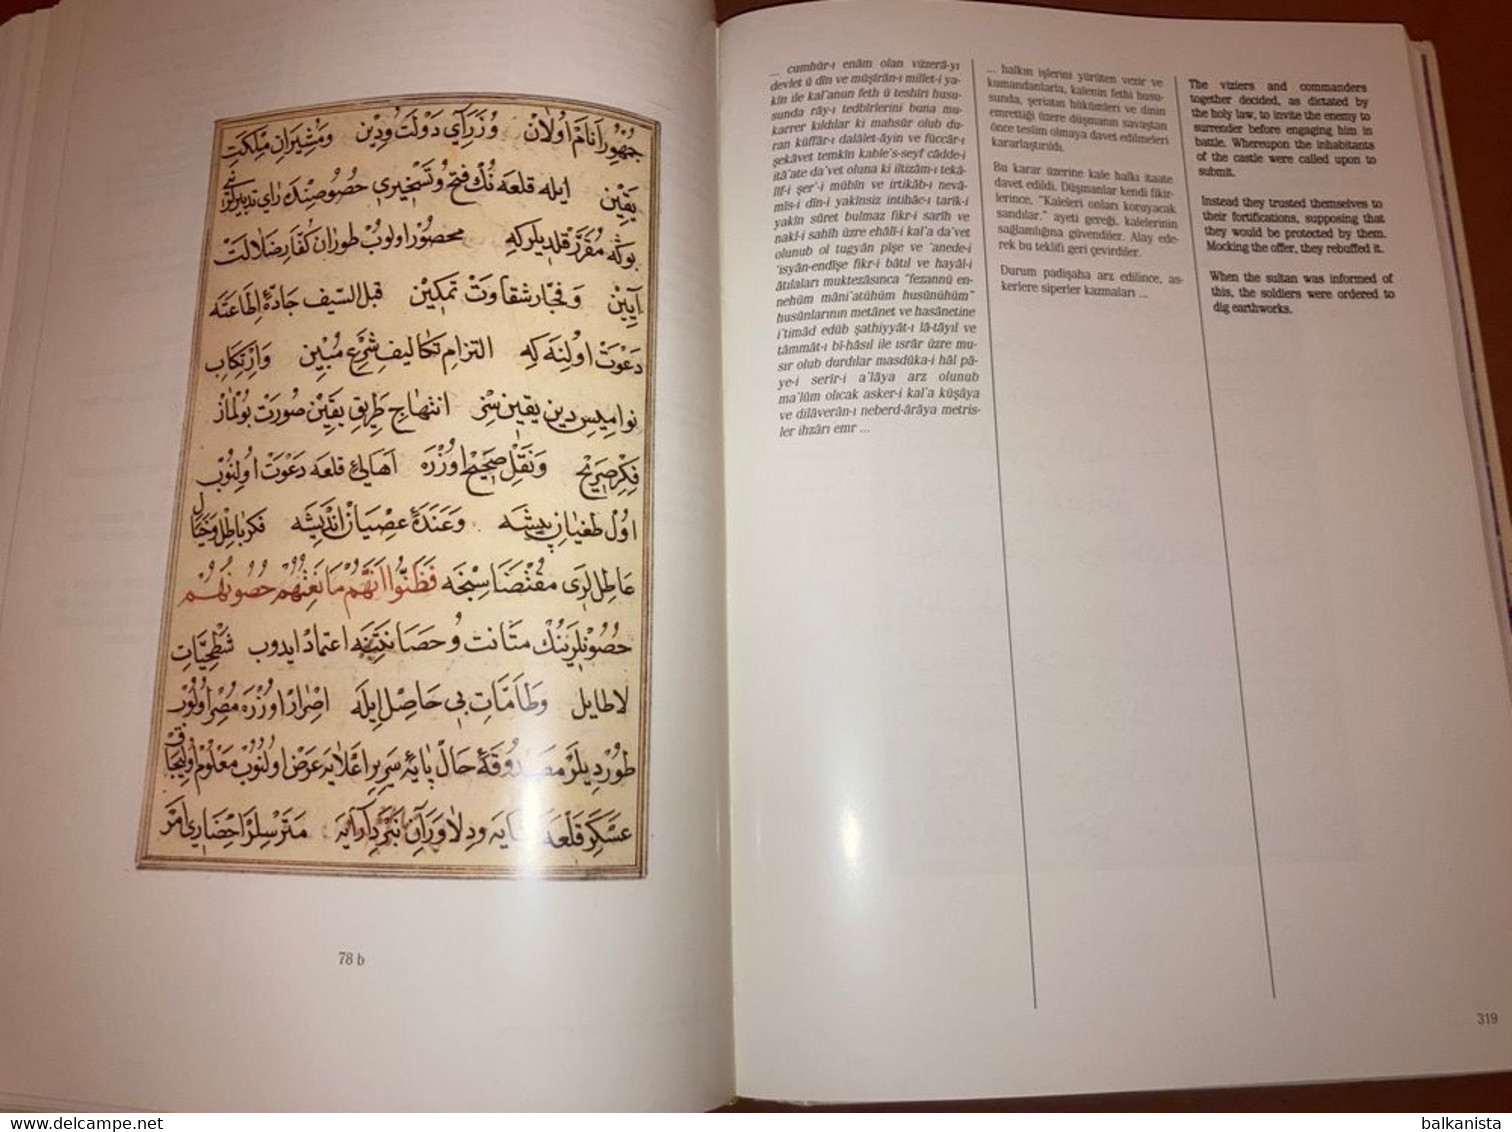 جمهور انام اولان وزرای دولت ودین ومشیران ملکت
یقین ایله قلعه نك فتح وتسخیری خصوصنده رای تدبیرلرنی
بوکه مقرر قلدیلر که محصور اولوب طوران کفار ضلالت
آیین وفجار شقاوت تمکین قبل السیف جادۀ اطاعته
دعوت اولنه که التزام تکالیف شرع مبین وارتکاب
نوامیس دین یقین سز انتهاج طریق یقین صورت بولماز
فکر صریح ونقل صحیح اوزره اهالی قلعه دعوت اولنوب
اول طغیان پیشه وعندۀ عصیان اندیشه فکر باطل وخیال
عاطللری مقتضاسنجه فَظَنُّوا اَنَّهُمْ مَانِعَتُهُمْ حُصُونُهُمْ
حصونلرینك متانت وحصانتنه اعتماد ایدوب شطحیات
لاطایل وطامّات بی حاصل ایله اصرار اوزره مصر اولوب
طوردیلر مصدوقۀ حال پایۀ سریر اعلایه عرض اولنوب معلوم اولیجاق
عسکر قلعه ودلاوران نبرد آرایه مترسلر احضاری امر
78 b
... cumhûr-ı enâm olan vüzerâ-yı
devlet ü dîn ve müşîrân-ı millet-i ya-
kîn ile kal'anun feth ü teshîri husu-
sunda rây-ı tedbîrlerini buna mu-
karrer kıldılar ki mahsûr olub du-
ran küffâr-ı dalâlet-âyin ve füccâr-ı
şekâvet temkîn kable's-seyf câdde-i
itâ'ate da'vet oluna ki iltizâm-ı tekâ-
lîf-i şer'-i mübîn ve irtikâb-ı nevâ-
mîs-i dîn-i yakînsiz intihâc-ı tarîk-i
yakîn sûret bulmaz fikr-i sarîh ve
nakl-i sahîh üzre ehâlî-i kal'a da'vet
olunub ol tugyân pîşe ve 'anede-i
'isyân-endîşe fikr-i bâtıl ve hayâl-i
âtılaları muktezâsınca "fezannû en-
nehüm mâni'atühüm husûnühüm"
husûnlarının metânet ve hasânetine
i'timâd edüb şathiyyât-ı lâ-tâyıl ve
tâmmât-ı bî-hâsıl ile ısrâr üzre mu-
sır olub durdılar masdûka-i hâl pâ-
ye-i serîr-i a'lâya arz olunub
ma'lûm olıcak asker-i kal'a küşâya
ve dilâverân-ı neberd-ârâya metris-
ler ihzârı emr ...
... halkın işlerini yürüten vezir ve
kumandanlarla, kalenin fethi husu-
sunda, şeriatın hükümleri ve dinin
emrettiği üzere düşmanın savaştan
önce teslim olmaya davet edilmeleri
kararlaştırıldı.
Bu karar üzerine kale halkı itaate
davet edildi. Düşmanlar kendi fikir-
lerince, "Kaleleri onları koruyacak
sandılar." ayeti gereği, kalelerinin
sağlamlığına güvendiler. Alay ede-
rek bu teklifi geri çevirdiler.
Durum padişaha arz edilince, as-
kerlere siperler kazmaları ...
The viziers and commanders
together decided, as dictated by
the holy law, to invite the enemy to
surrender before engaging him in
battle. Whereupon the inhabitants
of the castle were called upon to
submit.
Instead they trusted themselves to
their fortifications, supposing that
they would be protected by them.
Mocking the offer, they rebuffed it.
When the sultan was informed of
this, the soldiers were ordered to
dig earthworks.
319
balkanista